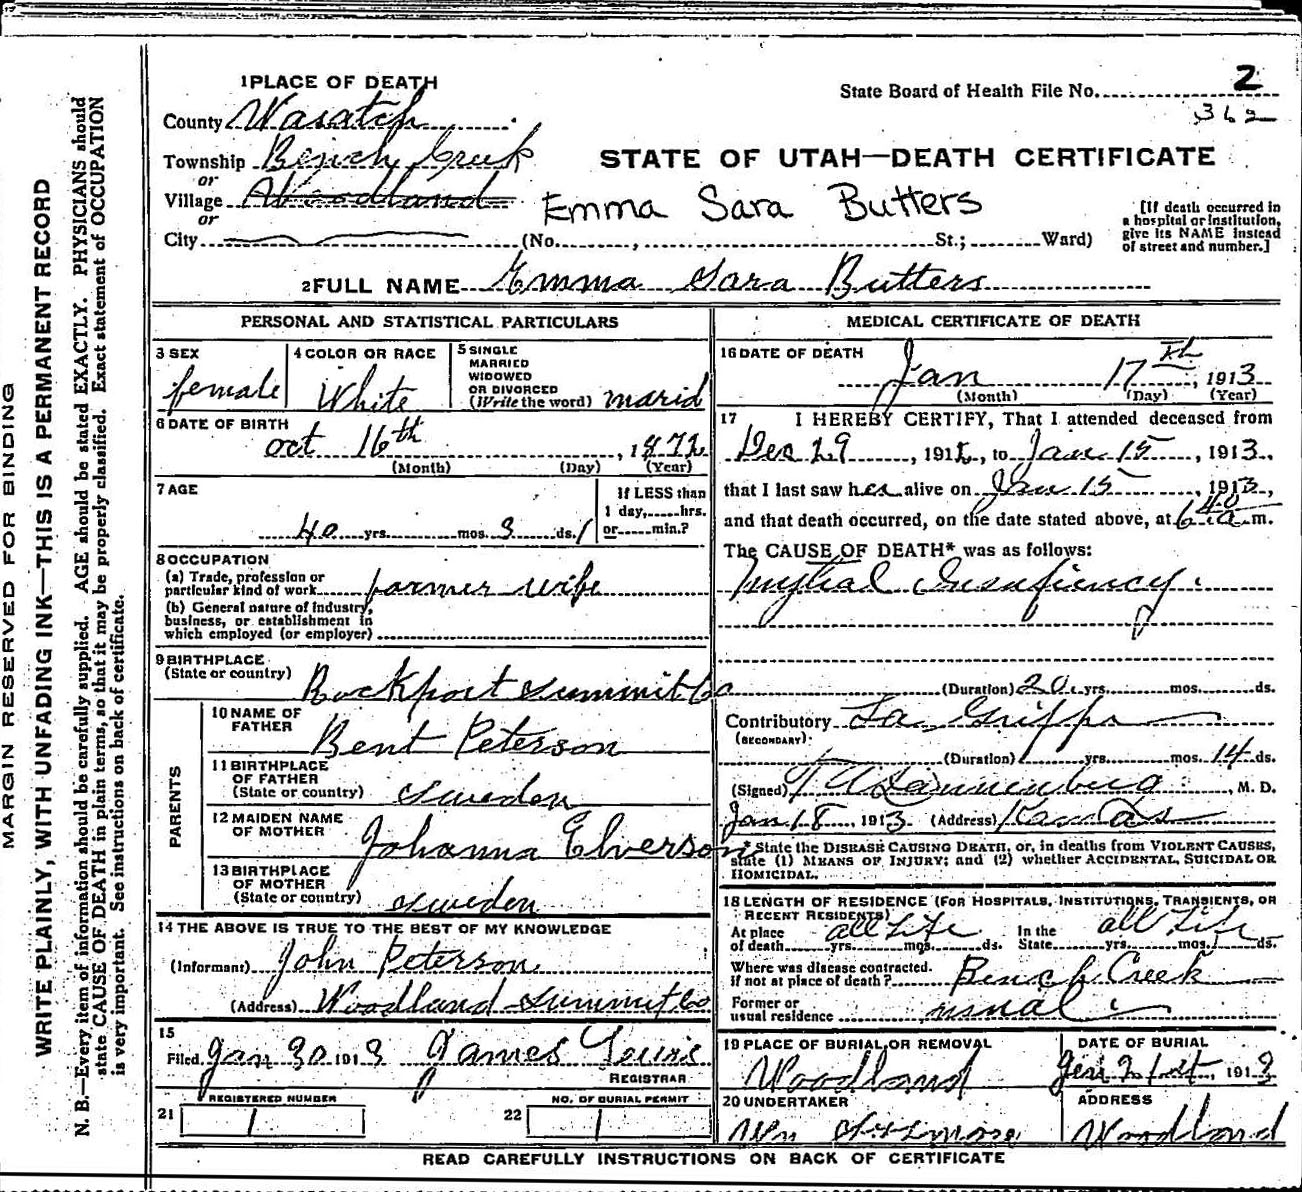 2
State Board of Health File No.
362
1 PLACE OF DEATH
County Wasatch
Township Bench Creek
or
Village Woodland
or
City
STATE OF UTAH—DEATH CERTIFICATE
Emma Sara Butters
(No. , St.; Ward)
[If death occurred in
a hospital or institution,
give its NAME instead
of street and number.]
2 FULL NAME Emma Sara Butters
PERSONAL AND STATISTICAL PARTICULARS
3 SEX
female
4 COLOR OR RACE
White
5 SINGLE
MARRIED
WIDOWED
OR DIVORCED
(Write the word) marid
6 DATE OF BIRTH
oct 16th , 1872
(Month) (Day) (Year)
7 AGE
40 yrs. mos. 3 ds. 1
If LESS than
1 day, hrs.
or min.?
8 OCCUPATION
(a) Trade, profession or
particular kind of work farmer wife
(b) General nature of Industry,
business, or establishment in
which employed (or employer)
9 BIRTHPLACE
(State or country) Rockport Summit Co
PARENTS
10 NAME OF
FATHER Bent Peterson
11 BIRTHPLACE
OF FATHER
(State or country) Sweden
12 MAIDEN NAME
OF MOTHER Johanna Elverson
13 BIRTHPLACE
OF MOTHER
(State or country) Sweden
14 THE ABOVE IS TRUE TO THE BEST OF MY KNOWLEDGE
(Informant) John Peterson
(Address) Woodland Summit Co
15
Filed Jan 30 1913 James
REGISTRAR
21 REGISTERED NUMBER
1
22 NO. OF BURIAL PERMIT
1
MEDICAL CERTIFICATE OF DEATH
16 DATE OF DEATH
Jan 17th , 1913
(Month) (Day) (Year)
17 I HEREBY CERTIFY, That I attended deceased from
Dec 29 , 1912, to Jan 15 , 1913.,
that I last saw her alive on Jan 15 , 1913,
and that death occurred, on the date stated above, at 6 40 a m.
The CAUSE OF DEATH* was as follows:
Mytral Insufiency
(Duration) 20 yrs. mos. ds.
Contributory La Grippe
(SECONDARY)
(Duration) yrs. mos. 14 ds.
(Signed) , M. D.
Jan 18 , 1913 (Address) Kamas
* State the DISEASE CAUSING DEATH, or, in deaths from VIOLENT CAUSES,
state (1) MEANS OF INJURY; and (2) whether ACCIDENTAL, SUICIDAL OR
HOMICIDAL.
18 LENGTH OF RESIDENCE (FOR HOSPITALS, INSTITUTIONS, TRANSIENTS, OR
RECENT RESIDENTS)
At place all Life In the all Life
of death yrs. mos. ds. State yrs. mos. ds.
Where was disease contracted.
If not at place of death? Bench Creek
Former or
usual residence usual
19 PLACE OF BURIAL OR REMOVAL
Woodland
DATE OF BURIAL
Jan 21st , 1913
20 UNDERTAKER
Wm
ADDRESS
Woodland
READ CAREFULLY INSTRUCTIONS ON BACK OF CERTIFICATE
MARGIN RESERVED FOR BINDING
WRITE PLAINLY, WITH UNFADING INK—THIS IS A PERMANENT RECORD
N. B.—Every item of information should be carefully supplied. AGE should be stated EXACTLY. PHYSICIANS should
state CAUSE OF DEATH in plain terms, so that it may be properly classified. Exact statement of OCCUPATION
is very important. See instructions on back of certificate.